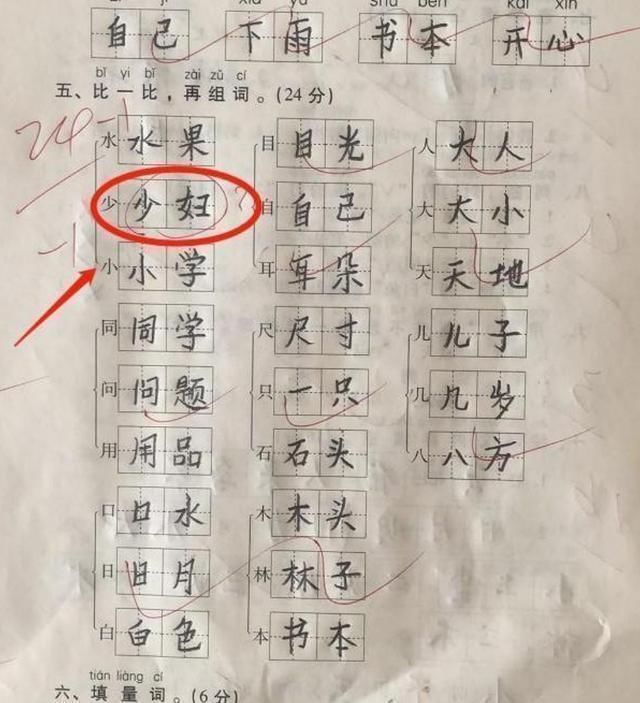 自己 下雨 书本 开心
bǐ yi bǐ zài zǔ cí
五、比一比,再组词。(24分)
24-1
水 水果 目 目光 人 大人
少 少妇 ? 自 自己 大 大小
-1
小 小学 耳 耳朵 天 天地
同 同学 尺 尺寸 儿 儿子
问 问题 只 一只 几 几岁
用 用品 石 石头 八 八方
口 口水 木 木头
日 日月 林 林子
白 白色 本 书本
tián liàng cí
六、填量词。(6分)